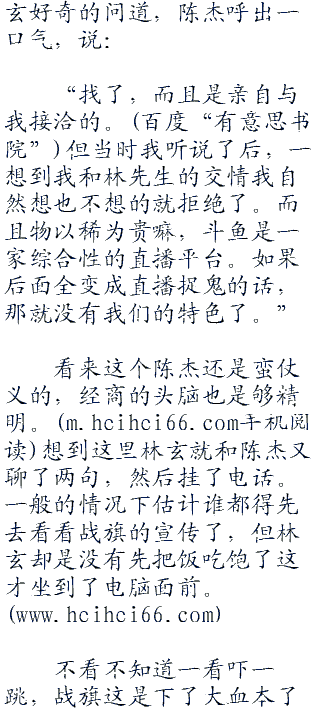 玄好奇的问道，陈杰呼出一
口气，说：
“找了，而且是亲自与
我接洽的。(百度“有意思书
院”)但当时我听说了后，一
想到我和林先生的交情我自
然想也不想的就拒绝了。而
且物以稀为贵癞，斗鱼是一
家综合性的直播平台。如果
后面全变成直播捉鬼的话，
那就没有我们的特色了。”
看来这个陈杰还是蛮仗
义的，经商的头脑也是够精
明。(m.hcihci66.com手机阅
读)想到这里林玄就和陈杰又
聊了两句，然后挂了电话。
一般的情况下估计谁都得先
去看看战旗的宣传了，但林
玄却是没有先把饭吃饱了这
才坐到了电脑面前。
(www.hcihci66.com)
不看不知道一看吓一
跳，战旗这是下了大血本了